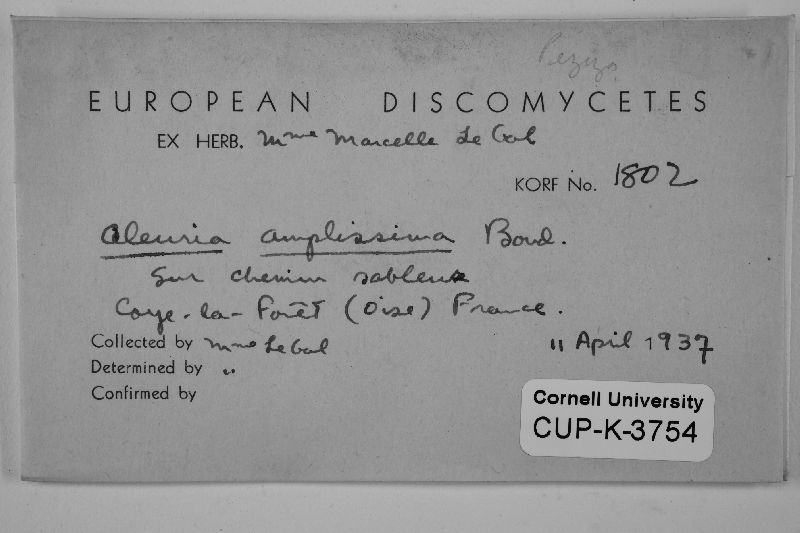 Peziza
EUROPEAN DISCOMYCETES
EX HERB. Mme Marcelle Le Gal
KORF No. 1802
Aleuria amplissima Boud.
Sur chemin sableux
Coye-la-Forêt (Oise) France.
Collected by Mme Le Gal 11 April 1937
Determined by "
Confirmed by
Cornell University
CUP-K-3754